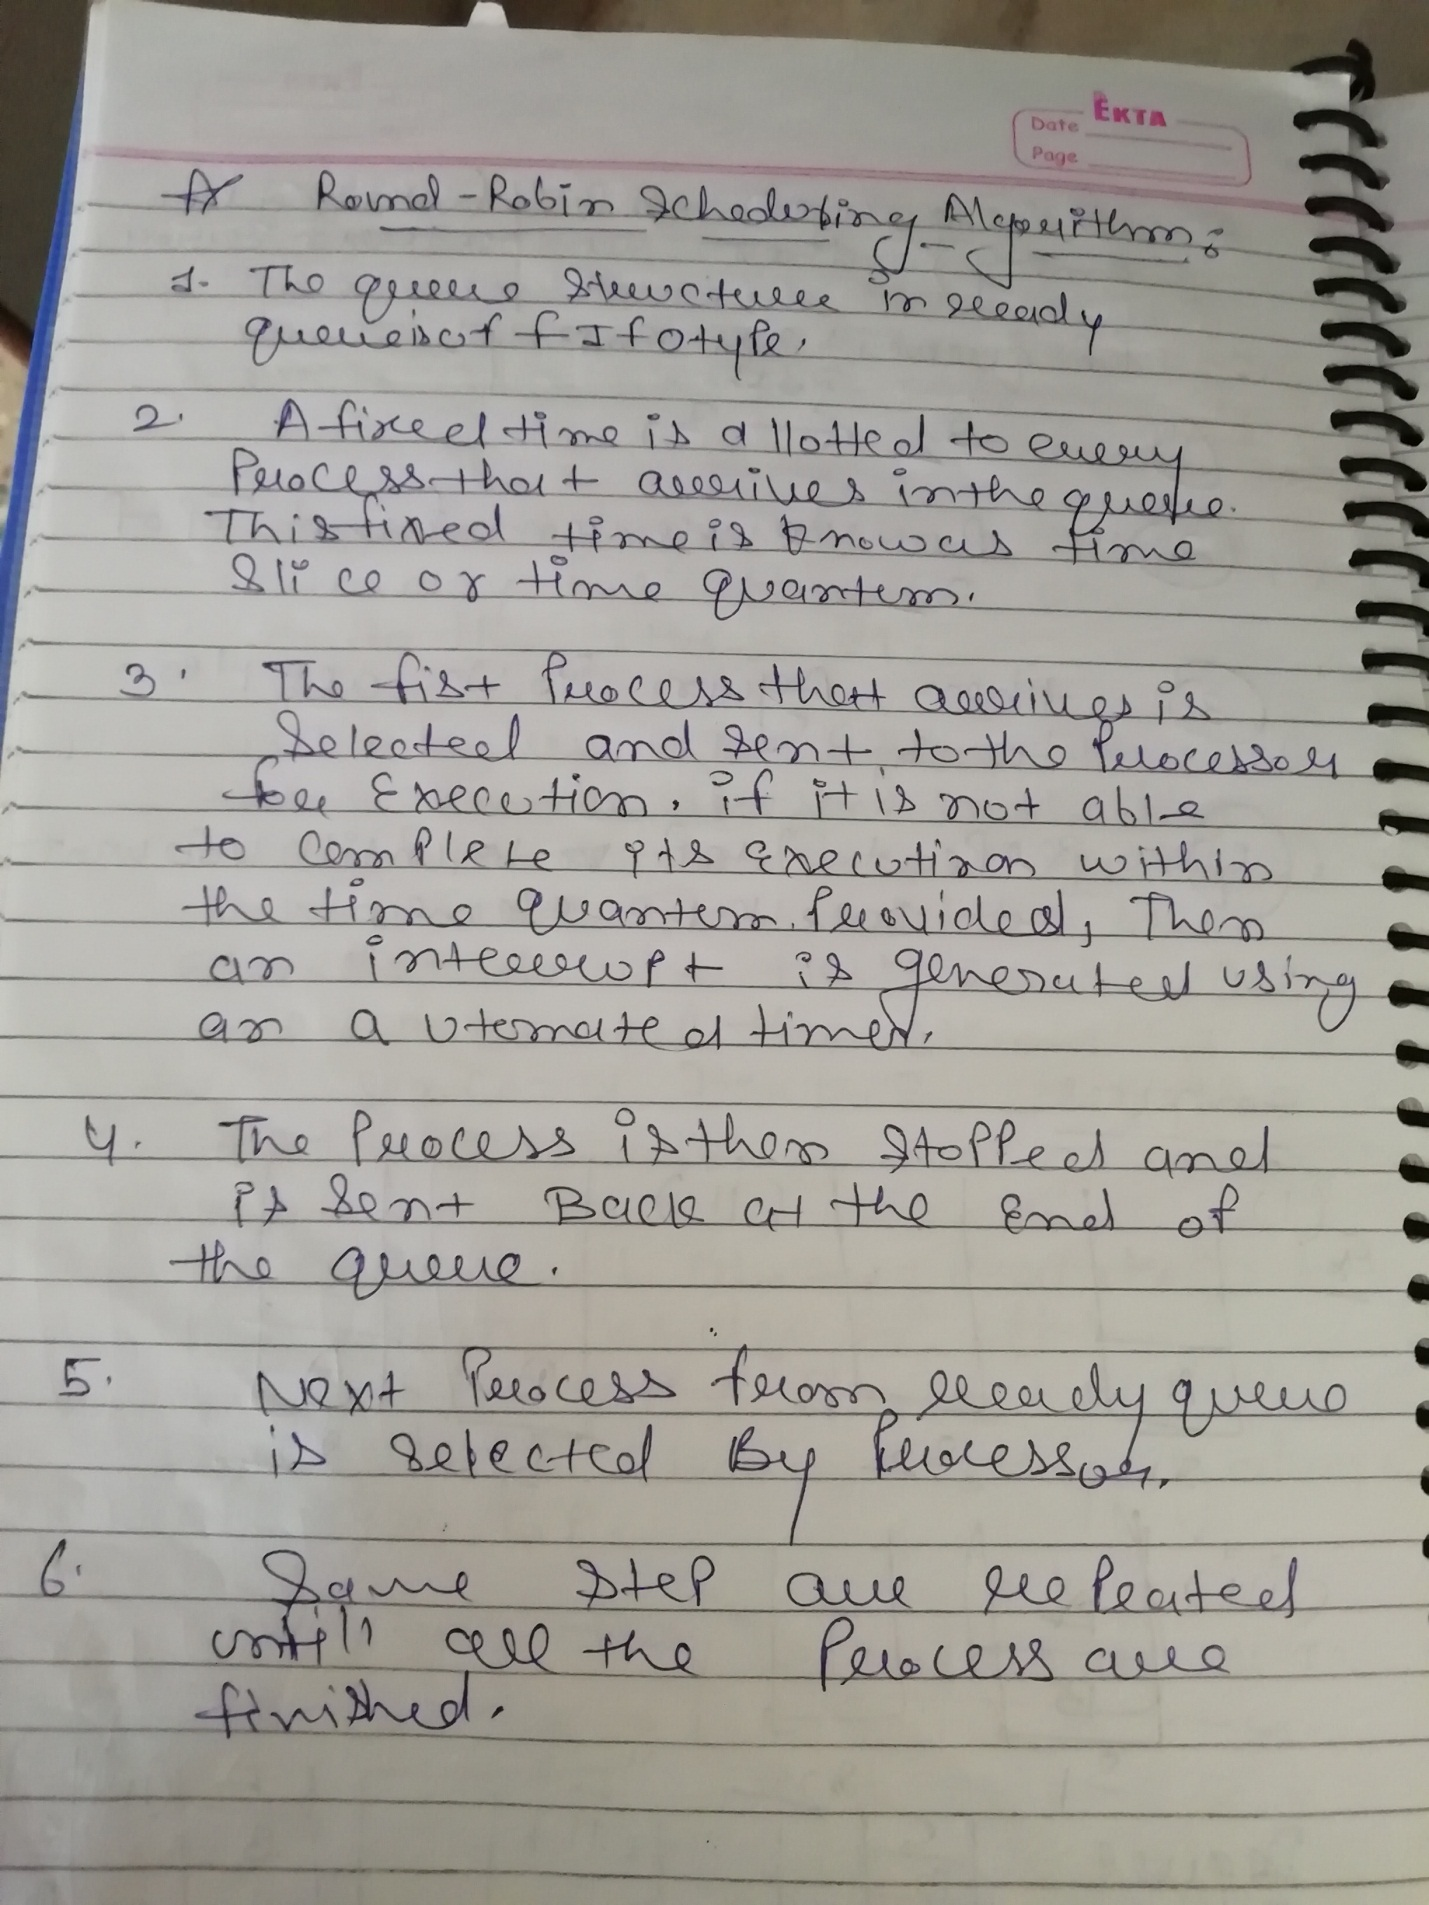 EKTA
Date
Page
Round-Robin Scheduling Algorithm:
1. The queue structure in ready
queue is of FIFO type.
2. A fixed time is allotted to every
Process that arrives in the queue.
This fixed time is know as time
Slice or time quantem.
3. The fist Process that arrives is
Selected and sent to the Processor
for Execution. if it is not able
to complete its execution within
the time quantem Provided, Then
an interrupt is generated using
an automated timer.
4. The Process is then stopped and
is sent Back at the End of
the queue.
5. Next Process from ready queue
is selected By Processor.
6. Same step are repeated
until all the Process are
finished.